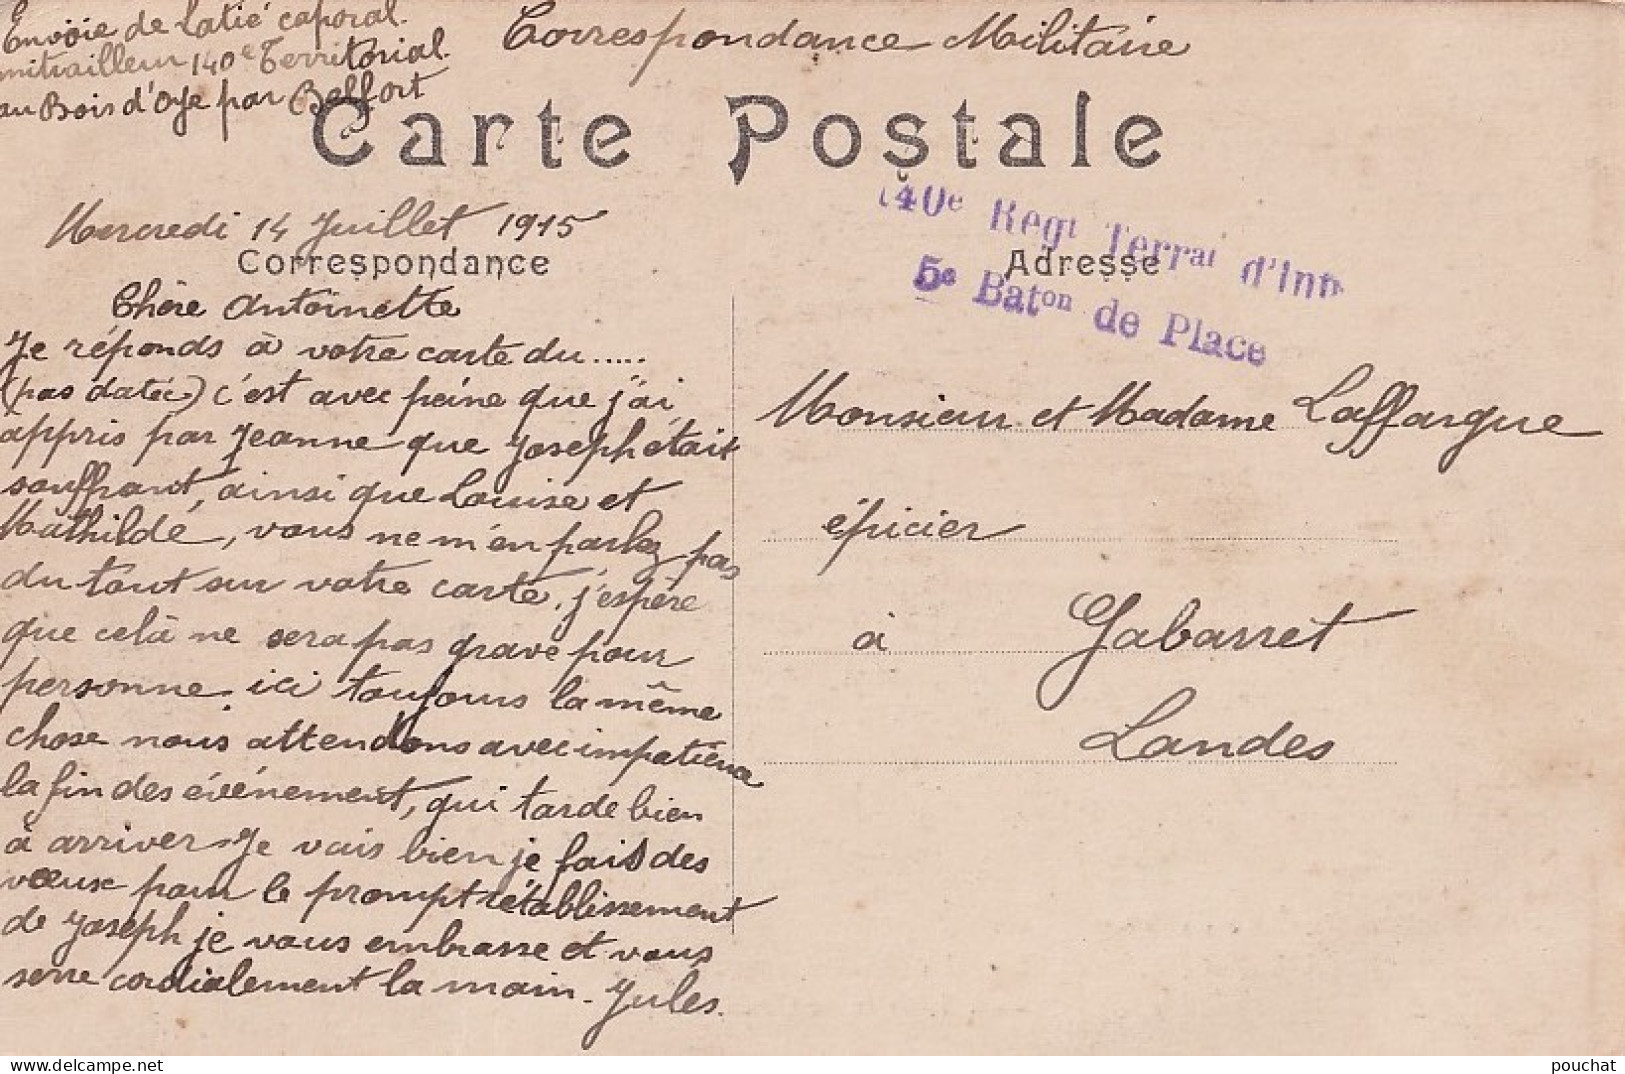 Envoie de Latié caporal.
mitrailleur 140e Territorial.
au Bois d'Oye par Belfort
Correspondance Militaire
Carte Postale
140e Regt Terral d'Inf
5e Baton de Place
Mercredi 14 Juillet 1915
Correspondance
Adresse
Chère Antoinette
Je réponds à votre carte du.....
(pas datée) c'est avec peine que j'ai
appris par Jeanne que Joseph était
souffrant, ainsi que Louise et
Mathilde, vous ne m'en parlez pas
du tout sur votre carte, j'espère
que celà ne sera pas grave pour
personne. ici toujours la même
chose nous attendons avec impatience
la fin des événement, qui tarde bien
à arriver. Je vais bien je fais des
vœux pour le prompt rétablissement
de Joseph je vous embrasse et vous
serre cordialement la main. Jules.
Monsieur et Madame Laffargue
épicier
à Gabarret
Landes
pouchat